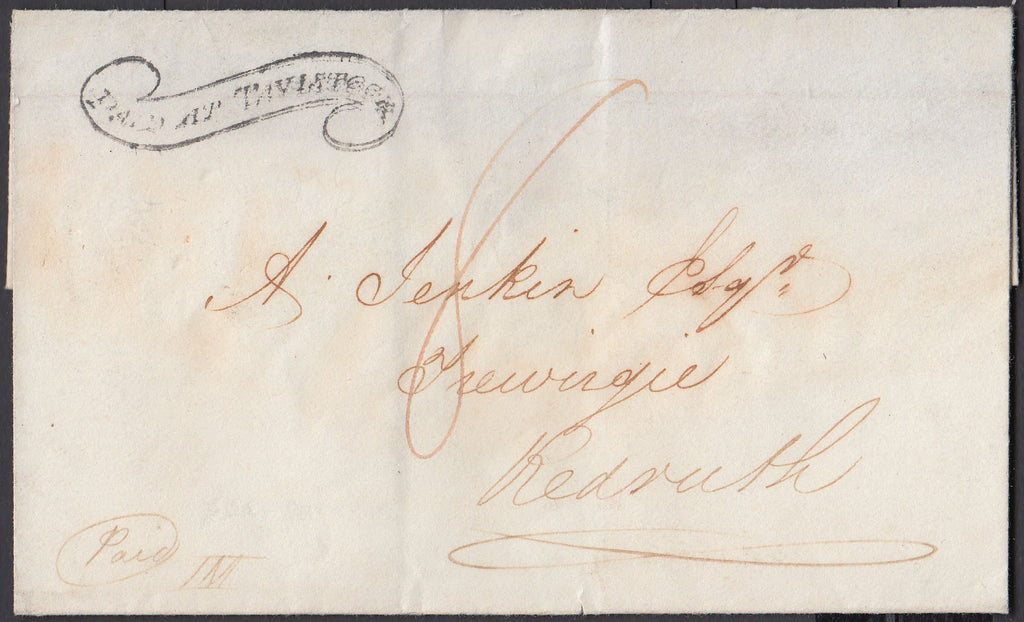 PAID AT TAVISTOCK
8
A. Jenkin Esqr.
Trewirgie
Redruth
Paid